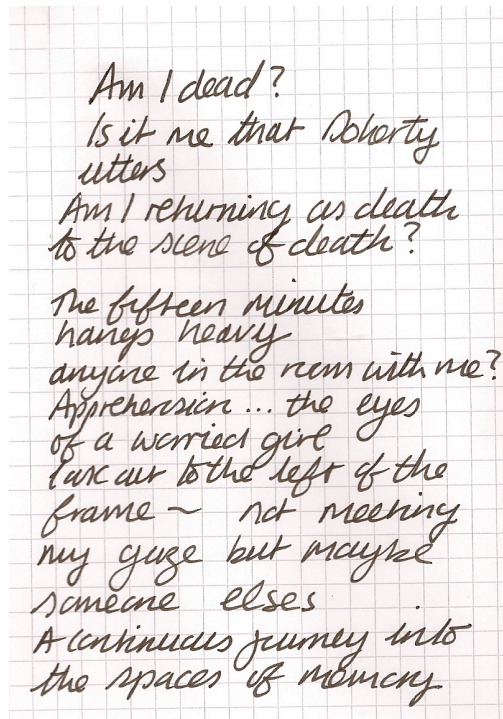 Am I dead?
Is it me that Doherty
utters
Am I returning as death
to the scene of death?
The fifteen minutes
hangs heavy
anyone in the room with me?
Apprehension... the eyes
of a worried girl
look out to the left of the
frame ~ not meeting
my gaze but maybe
someone elses
A continuous journey into
the spaces of memory